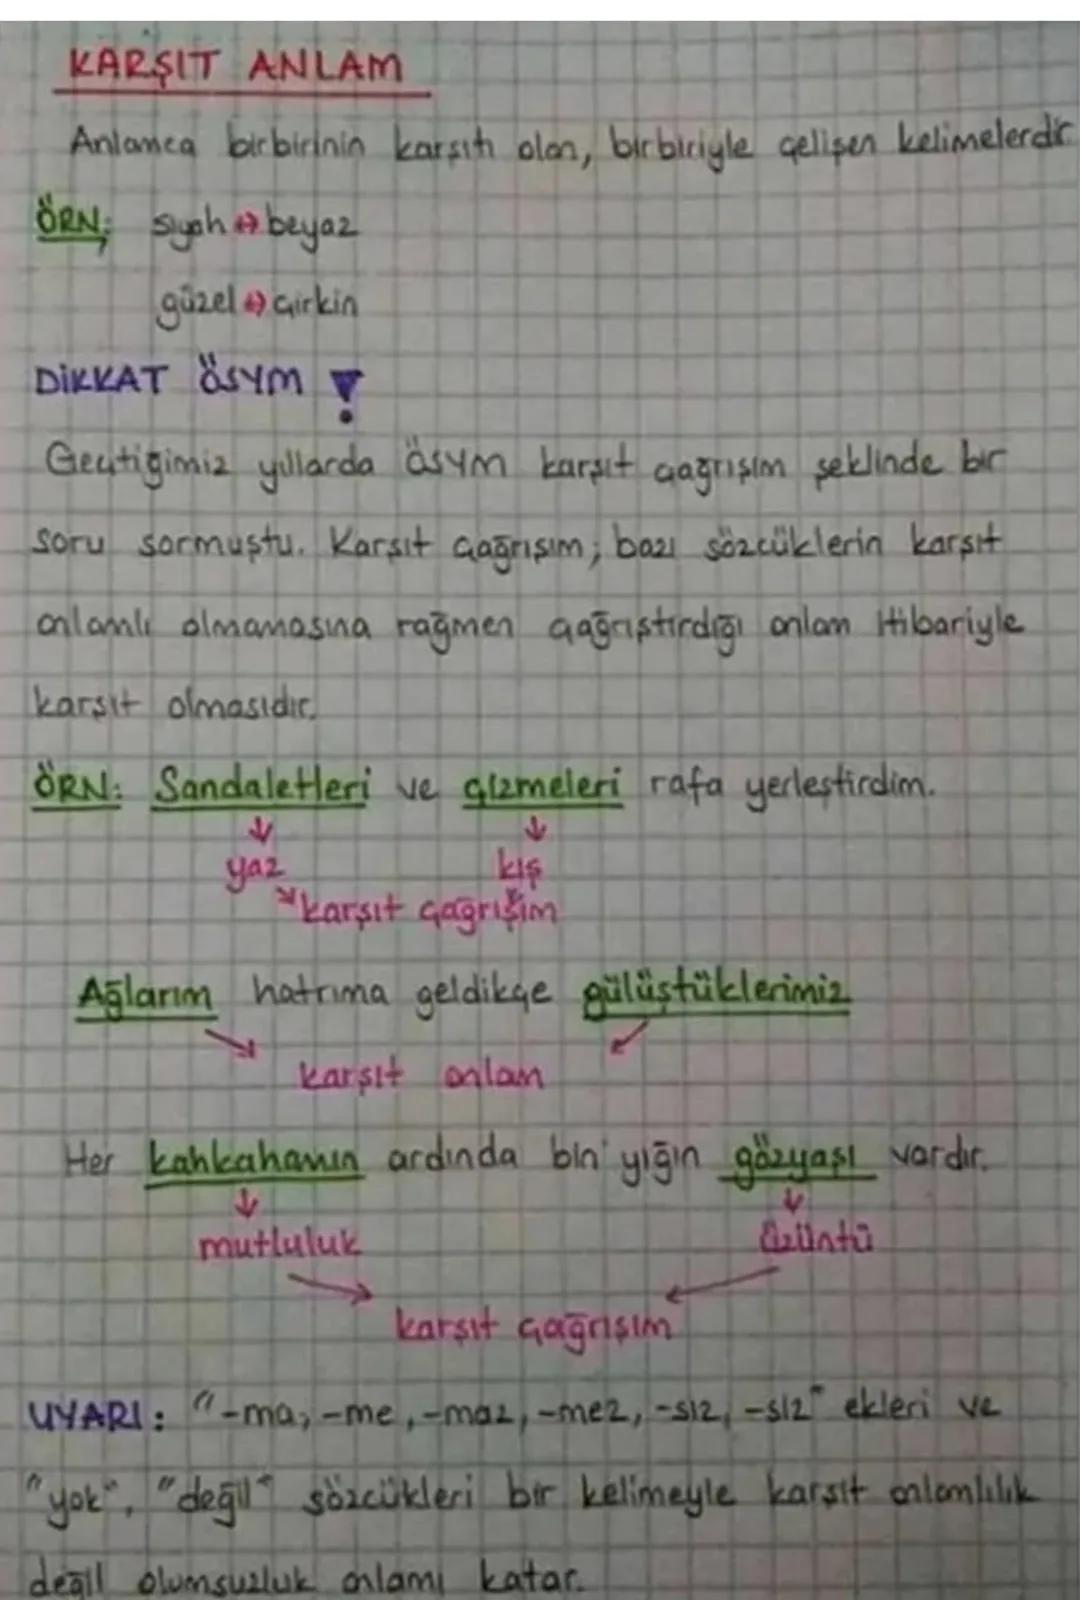 KARŞIT ANLAM
Anlamca birbirinin karşıtı olan, birbiriyle çelişen kelimelerdir.
ÖRN; siyah ↔ beyaz
güzel ↔ çirkin
DİKKAT ÖSYM !
Geçtiğimiz yıllarda ÖSYM karşıt çağrışım şeklinde bir
soru sormuştu. Karşıt çağrışım; bazı sözcüklerin karşıt
anlamlı olmamasına rağmen çağrıştırdığı anlam itibariyle
karşıt olmasıdır.
ÖRN: Sandaletleri ve çizmeleri rafa yerleştirdim.
yaz kış
karşıt çağrışım
Ağlarım hatrıma geldikçe gülüştüklerimiz
karşıt anlam
Her kahkahanın ardında bin yığın gözyaşı vardır.
mutluluk üzüntü
karşıt çağrışım
UYARI: "-ma, -me, -maz, -mez, -sız, -siz" ekleri ve
"yok", "değil" sözcükleri bir kelimeyle karşıt anlamlılık
değil olumsuzluk anlamı katar.